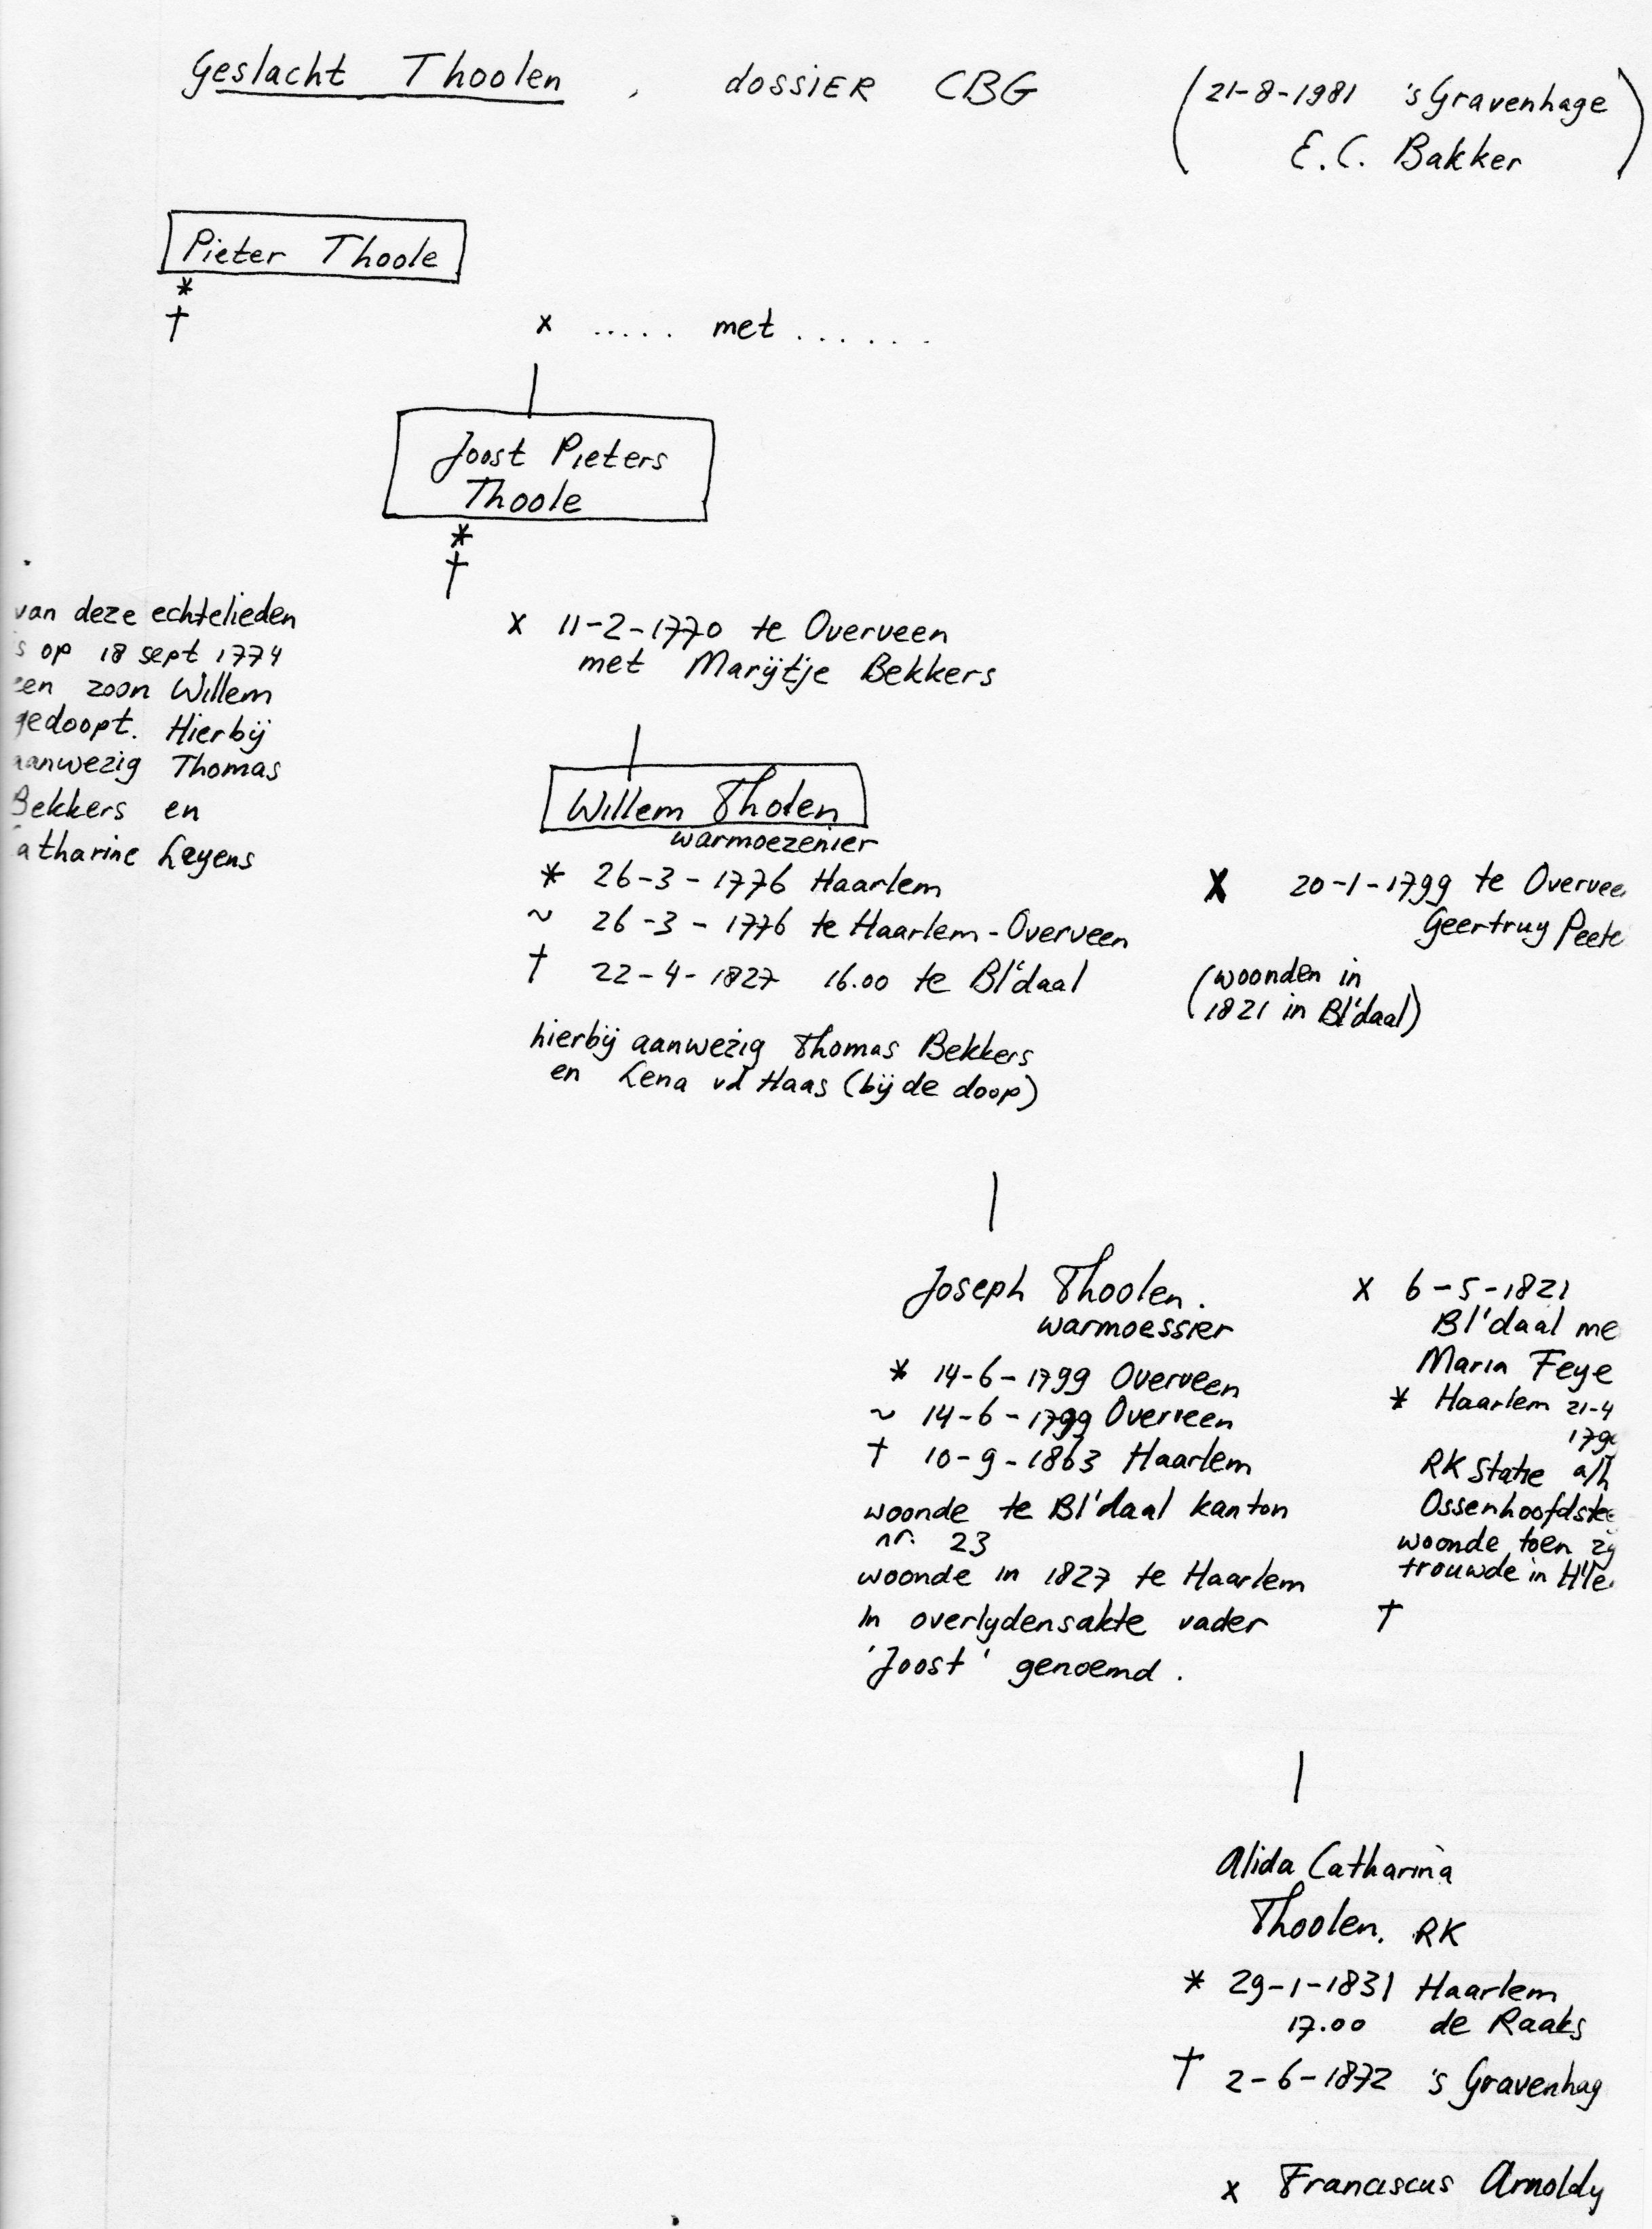 Geslacht Thoolen , dossiER CBG
(21-8-1981 's Gravenhage
E.C. Bakker)
Pieter Thoole
*
†
x ..... met ......
Joost Pieters
Thoole
*
†
x 11-2-1770 te Overveen
met Marijtje Bekkers
van deze echtelieden
s op 18 sept 1774
een zoon Willem
gedoopt. Hierbij
aanwezig Thomas
Bekkers en
atharine Leyens
Willem Tholen
warmoezenier
* 26-3-1776 Haarlem
~ 26-3-1776 te Haarlem-Overveen
† 22-4-1827 16.00 te Bl'daal
hierbij aanwezig Thomas Bekkers
en Lena vd Haas (bij de doop)
X 20-1-1799 te Overvee
Geertruy Peete
(woonden in
1821 in Bl'daal)
Joseph Thoolen.
warmoessier
* 14-6-1799 Overveen
~ 14-6-1799 Overveen
† 10-9-1863 Haarlem
woonde te Bl'daal kanton
nr. 23
woonde in 1827 te Haarlem
In overlydensakte vader
'Joost' genoemd.
x 6-5-1821
Bl'daal me
Maria Feye
* Haarlem 21-4
179
RK Statie a/h
Ossenhoofdste
woonde toen zy
trouwde in H'le
†
Alida Catharina
Thoolen. RK
* 29-1-1831 Haarlem
17.00 de Raaks
† 2-6-1872 's Gravenhag
x Franciscus Arnoldy